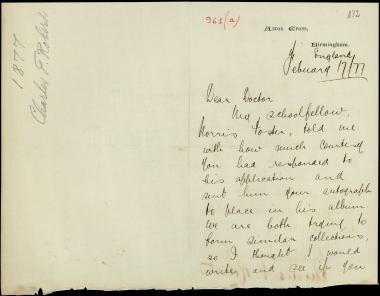 961(a)
172
1877
Charles F. Roberts
Aston Cross,
Birmingham.
England
February 17/77
Dear Doctor
My schoolfellow,
Norris Foster, told me
with how much courtesy
you had responded to
his application and
sent him your autograph
to place in his album.
We are both trying to
form similar collections,
so I thought I would
write and see if you